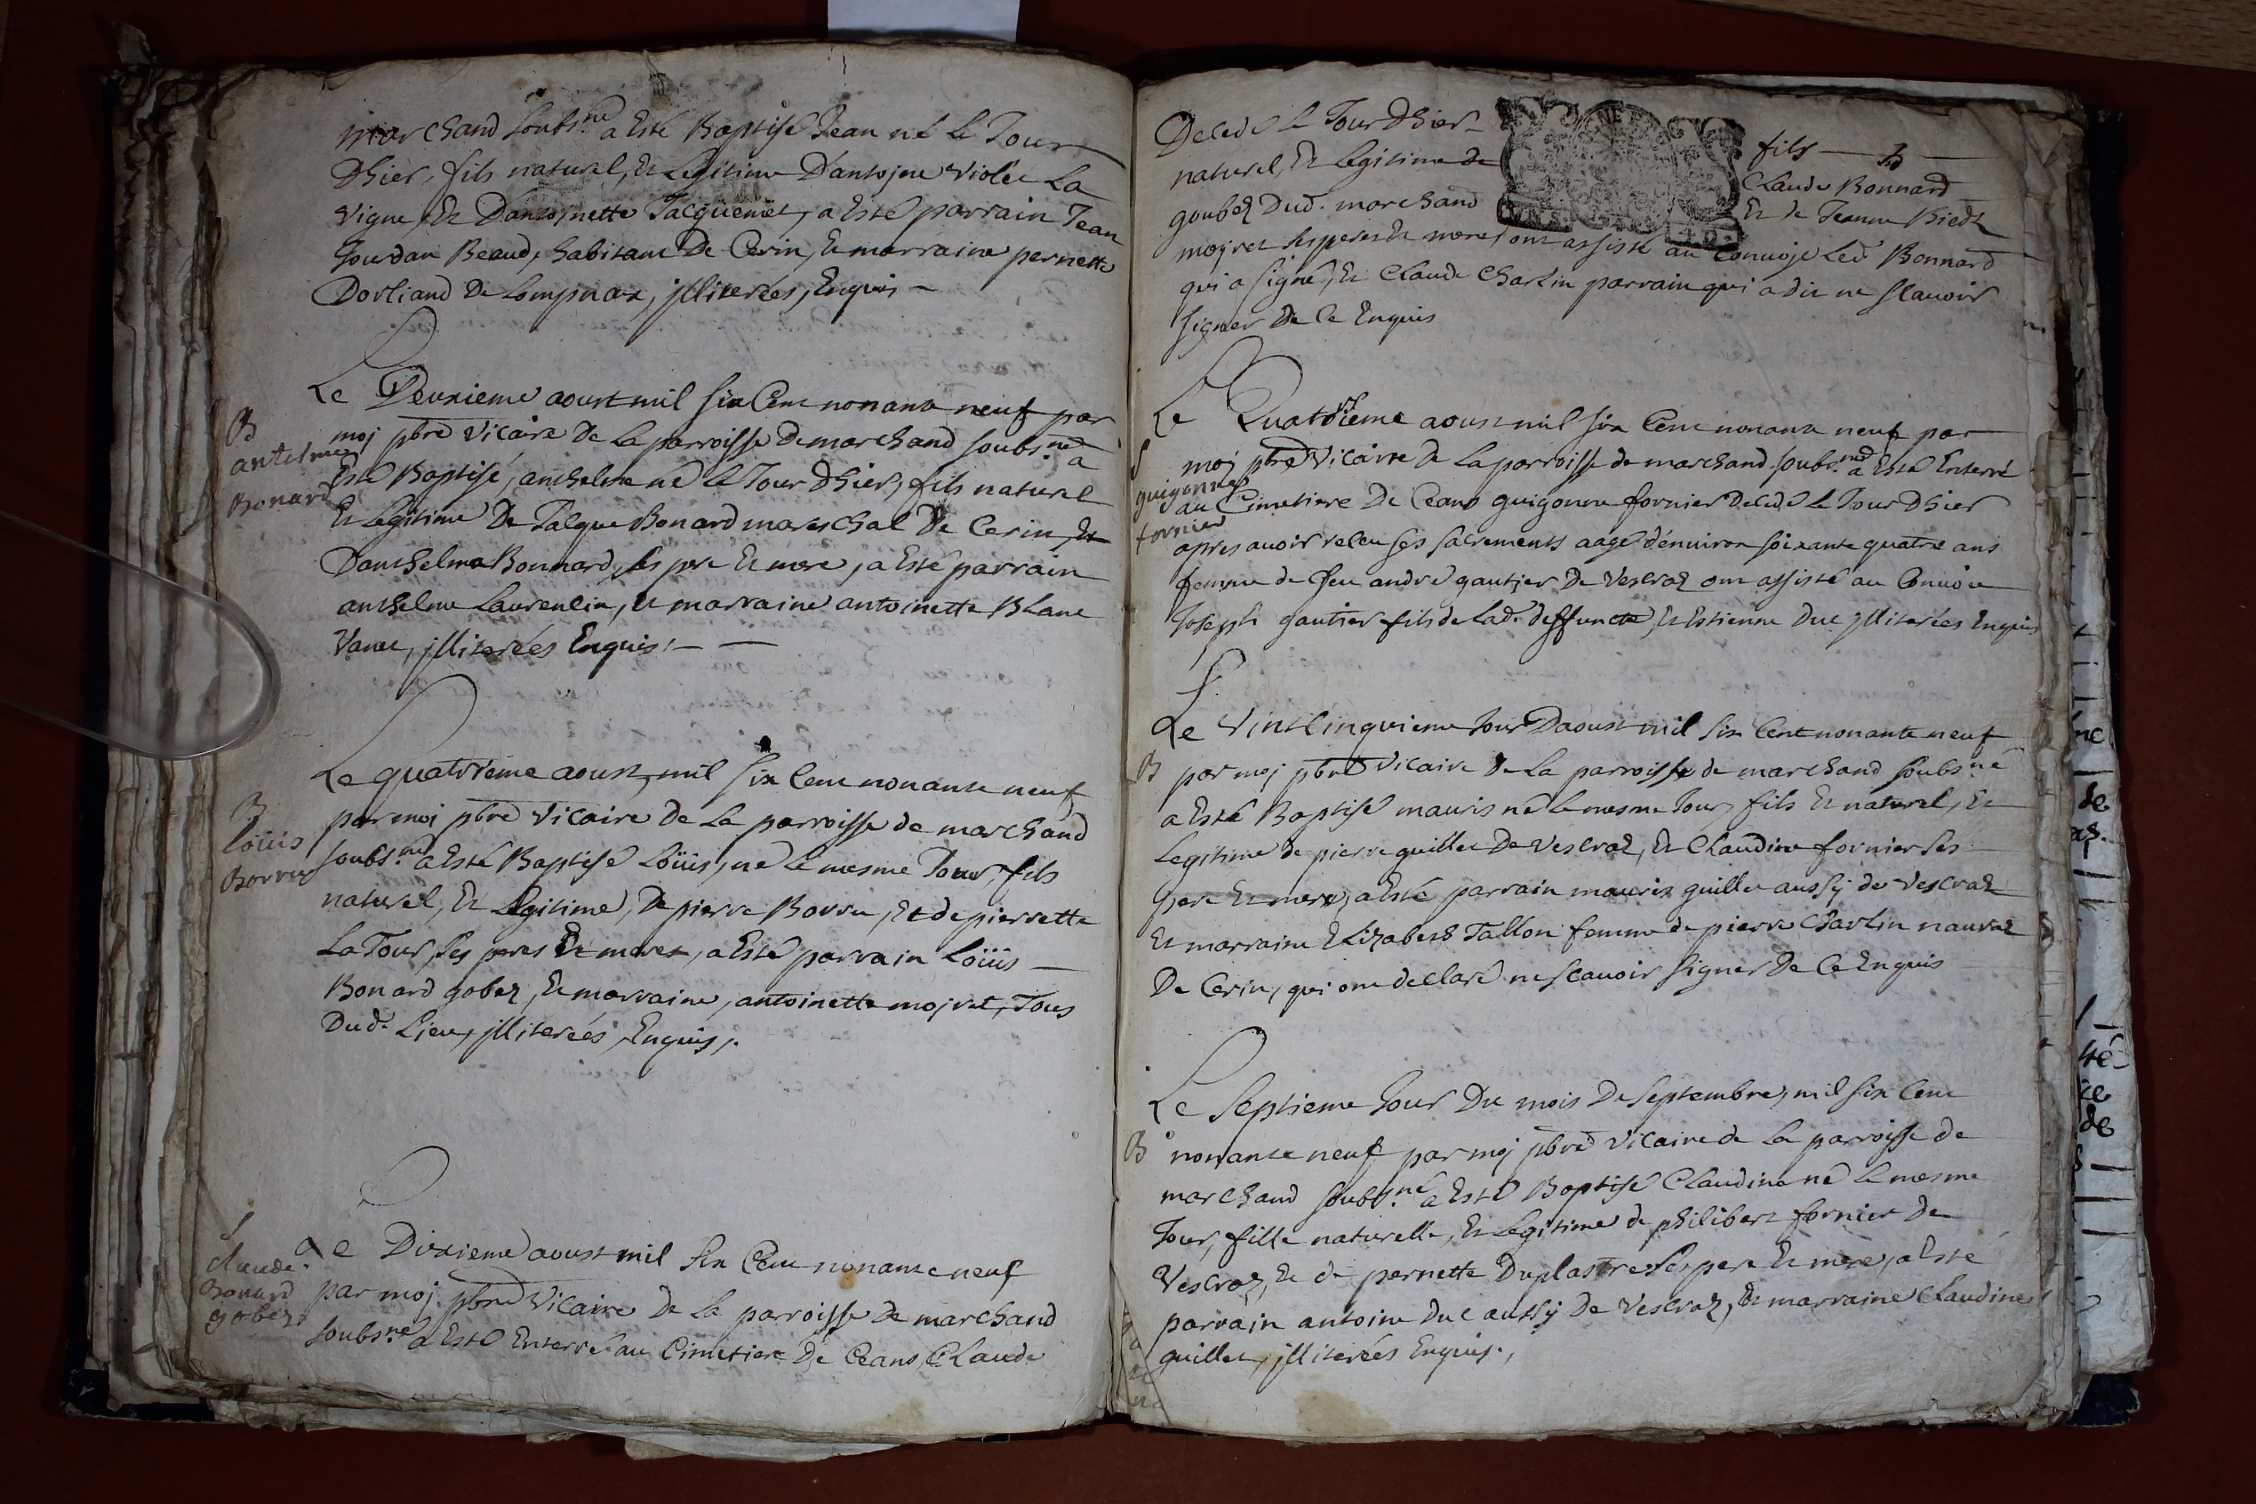 marchand soubs.né a Esté Baptisé Jean né le Jour
Dhier, fils naturel, Et Legitime D'antojne Violée La
Vigne, Et D'antojnette Jacquemet, a Esté parrain Jean
Jourdan Beaud, habitant De Cerin, Et marraine pernette
Dorliand De Lompnax, jlliterées, Enquis –
Le Deuxieme aoust mil six Cent nonante neuf par
moj pbre Vicaire De La parroisse De marchand soubs.né a
B
antelme
Bonard
Esté Baptisé, anthelme né le Jour dhier, fils naturel
Et Legitime De Jaque Bonard mareschal De Cerin, Et
Danthelma Bonnard, ses pere Et mere, a Esté parrain
anthelme Laurencin, Et marraine antoinette Blanc
Vanet, jlliterées Enquis. – –
Le quatrieme aoust, mil six Cent nonante neuf
par moj pbre Vicaire De La parroisse de marchand
B
Loüis
Borru
soubs.né a Esté Baptisé Loüis, né le mesme Jour, fils
naturel, Et Legitime, De pierre Borru, Et de pierrette
La Tour, ses peres Et meres, a Esté parrain Loüis –
Bonard gobez, Et marraine, antoinette mojret, Tous
Dud. Lieu, jlliterées, Enquis.
S
claude
Bonard
gobez
Le Dixieme aoust mil six Cent nonante neuf
par moj pbre Vicaire De La parroisse De marchand
soubs.né a Esté Enterré au Cimetiere De Ceans, Claude
Decedé le Jour Dhier – fils –
naturel, Et Legitime de Claude Bonnard
goubez Dud. marchand Et de Jeanne
mojret ses peres Et meres, ont assisté au Convoje Led Bonnard
qui a signé, Et Claude Charlin parrain qui a dit ne scavoir
signer De Ce Enquis
Le Quatorzieme aoust mil six Cent nonante neuf par
moj pbre Vicaire De La parroisse de marchand soubs.né a Esté Enterré
S
guigonne
fornier
au Cimetiere De Ceans guigonne fornier Decedé le Jour Dhier
apres avoir receu ses sacrements aagé d'environ soixante quatre ans
femme de feu andré gautier De Vescraz ont assisté au Convoie
Joseph gautier fils de lad. deffuncte, Et Estienne Duc jlliterées Enquis
Le Vintcinquieme Jour Daoust mil six Cent nonante neuf
B
par moj pbre Vicaire De La parroisse de marchand soubs.né
a Esté Baptisé mauris né le mesme Jour, fils Et naturel, Et
Legitime de pierre guillet De Vescraz, Et Claudine fornier ses
pere Et mere, a Esté parrain mauris guillet aussy de Vescraz
Et marraine Elizabeth Tallon femme de pierre Charlin
De Cerin, qui ont declaré ne scavoir signer De Ce Enquis
Le Septieme Jour Du mois De septembre, mil six Cent
B
nonante neuf par moj pbre Vicaire de La parroisse de
marchand soubs.né a Esté Baptisé Claudine né le mesme
Jour, fille naturelle, Et Legitime de philibert fornier De
Vescraz, Et de pernette Duplastre ses pere Et mere, a Esté
parrain antoine Duc aussy De Vescraz, Et marraine Claudine
guillet, jlliterées Enquis.